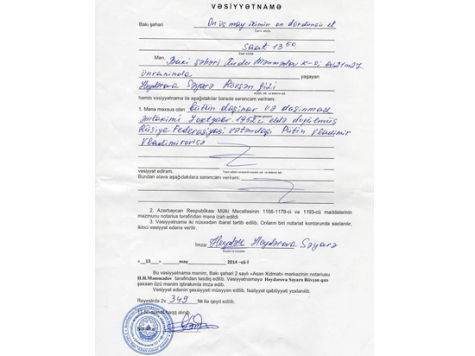 VƏSİYYƏTNAMƏ
Bakı şəhəri On üç may ikimin on dördüncü il
saat 13 50
Mən, Bakı şəhəri
ünvanında yaşayan
Heydərova Səyarə Rövşən qızı
həmin vəsiyyətnamə ilə aşağıdakılar barədə sərəncam verirəm:
1. Mənə məxsus olan Bütün daşınar və daşınmaz
əmlakımı 1952 ildə doğulmuş
Rusiya Federasiyası vətəndaşı Putin Vladimir
Vladimiroviçə
vəsiyyət edirəm.
Bundan əlavə aşağıdakılara sərəncam verirəm:
2. Azərbaycan Respublikası Mülki Məcəlləsinin 1166-1179-cu və 1193-cü maddələrinin
məzmunu notarius tərəfindən mənə izah edildi.
3. Vəsiyyətnamə iki nüsxədən ibarət tərtib edilib. Onların biri notariat kontorunda saxlanılır,
ikinci vəsiyyət edənə verilir.
İmza: Heydərova Səyarə
«__13__» ____may____ 2014-cü il
Bu vəsiyyətnamə mənim, Bakı şəhəri 2 saylı «Asan Xidmət» mərkəzinin notariusu
H.H.Məmmədov tərəfindən təsdiq edilib. Vəsiyyətnaməyə Heydərova Səyarə Rövşən qızı
şəxsən özü mənim iştirakımla imza edib.
Vəsiyyət edənin şəxsiyyəti müəyyən edilib, fəaliyyət qabiliyyəti yoxlanılıb.
Reyestrdə 2v 349 № ilə qeyd edilib.
haqqı alınıb.